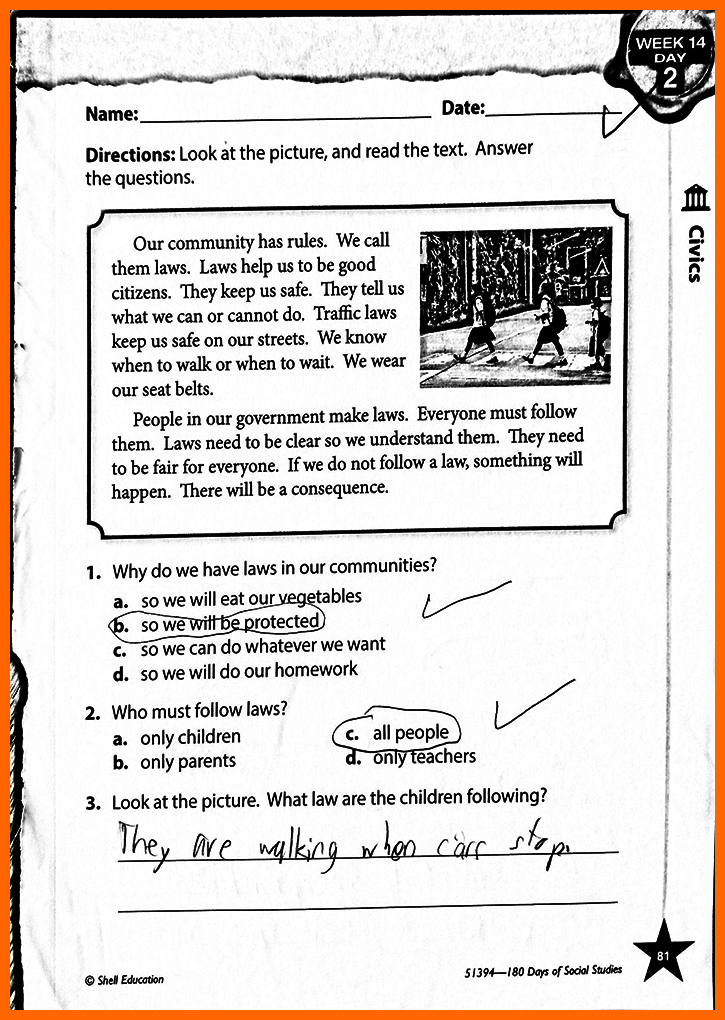 WEEK 14
DAY
2
Name: Date:
Directions: Look at the picture, and read the text. Answer
the questions.
Civics
Our community has rules. We call
them laws. Laws help us to be good
citizens. They keep us safe. They tell us
what we can or cannot do. Traffic laws
keep us safe on our streets. We know
when to walk or when to wait. We wear
our seat belts.
People in our government make laws. Everyone must follow
them. Laws need to be clear so we understand them. They need
to be fair for everyone. If we do not follow a law, something will
happen. There will be a consequence.
1. Why do we have laws in our communities?
a. so we will eat our vegetables
b. so we will be protected
c. so we can do whatever we want
d. so we will do our homework
2. Who must follow laws?
a. only children
b. only parents
c. all people
d. only teachers
3. Look at the picture. What law are the children following?
They are walking when cars stop.
81
© Shell Education
51394—180 Days of Social Studies